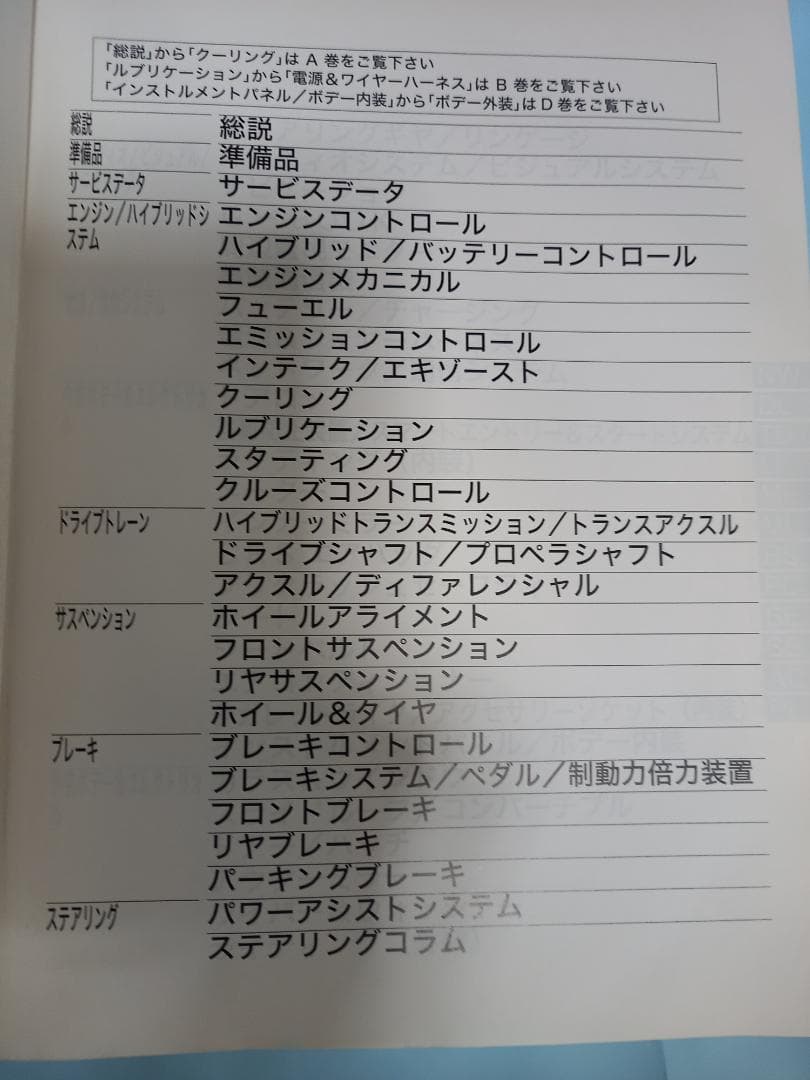 「総説」から「クーリング」は A 巻をご覧下さい
「ルブリケーション」から「電源＆ワイヤーハーネス」は B 巻をご覧下さい
「インストルメントパネル／ボデー内装」から「ボデー外装」は D 巻をご覧下さい
総説 総説
準備品 準備品
サービスデータ サービスデータ
エンジン/ハイブリッドシ エンジンコントロール
ステム ハイブリッド／バッテリーコントロール
エンジンメカニカル
フューエル
エミッションコントロール
インテーク／エキゾースト
クーリング
ルブリケーション
スターティング
クルーズコントロール
ドライブトレーン ハイブリッドトランスミッション／トランスアクスル
ドライブシャフト／プロペラシャフト
アクスル／ディファレンシャル
サスペンション ホイールアライメント
フロントサスペンション
リヤサスペンション
ホイール＆タイヤ
ブレーキ ブレーキコントロール
ブレーキシステム／ペダル／制動力倍力装置
フロントブレーキ
リヤブレーキ
パーキングブレーキ
ステアリング パワーアシストシステム
ステアリングコラム